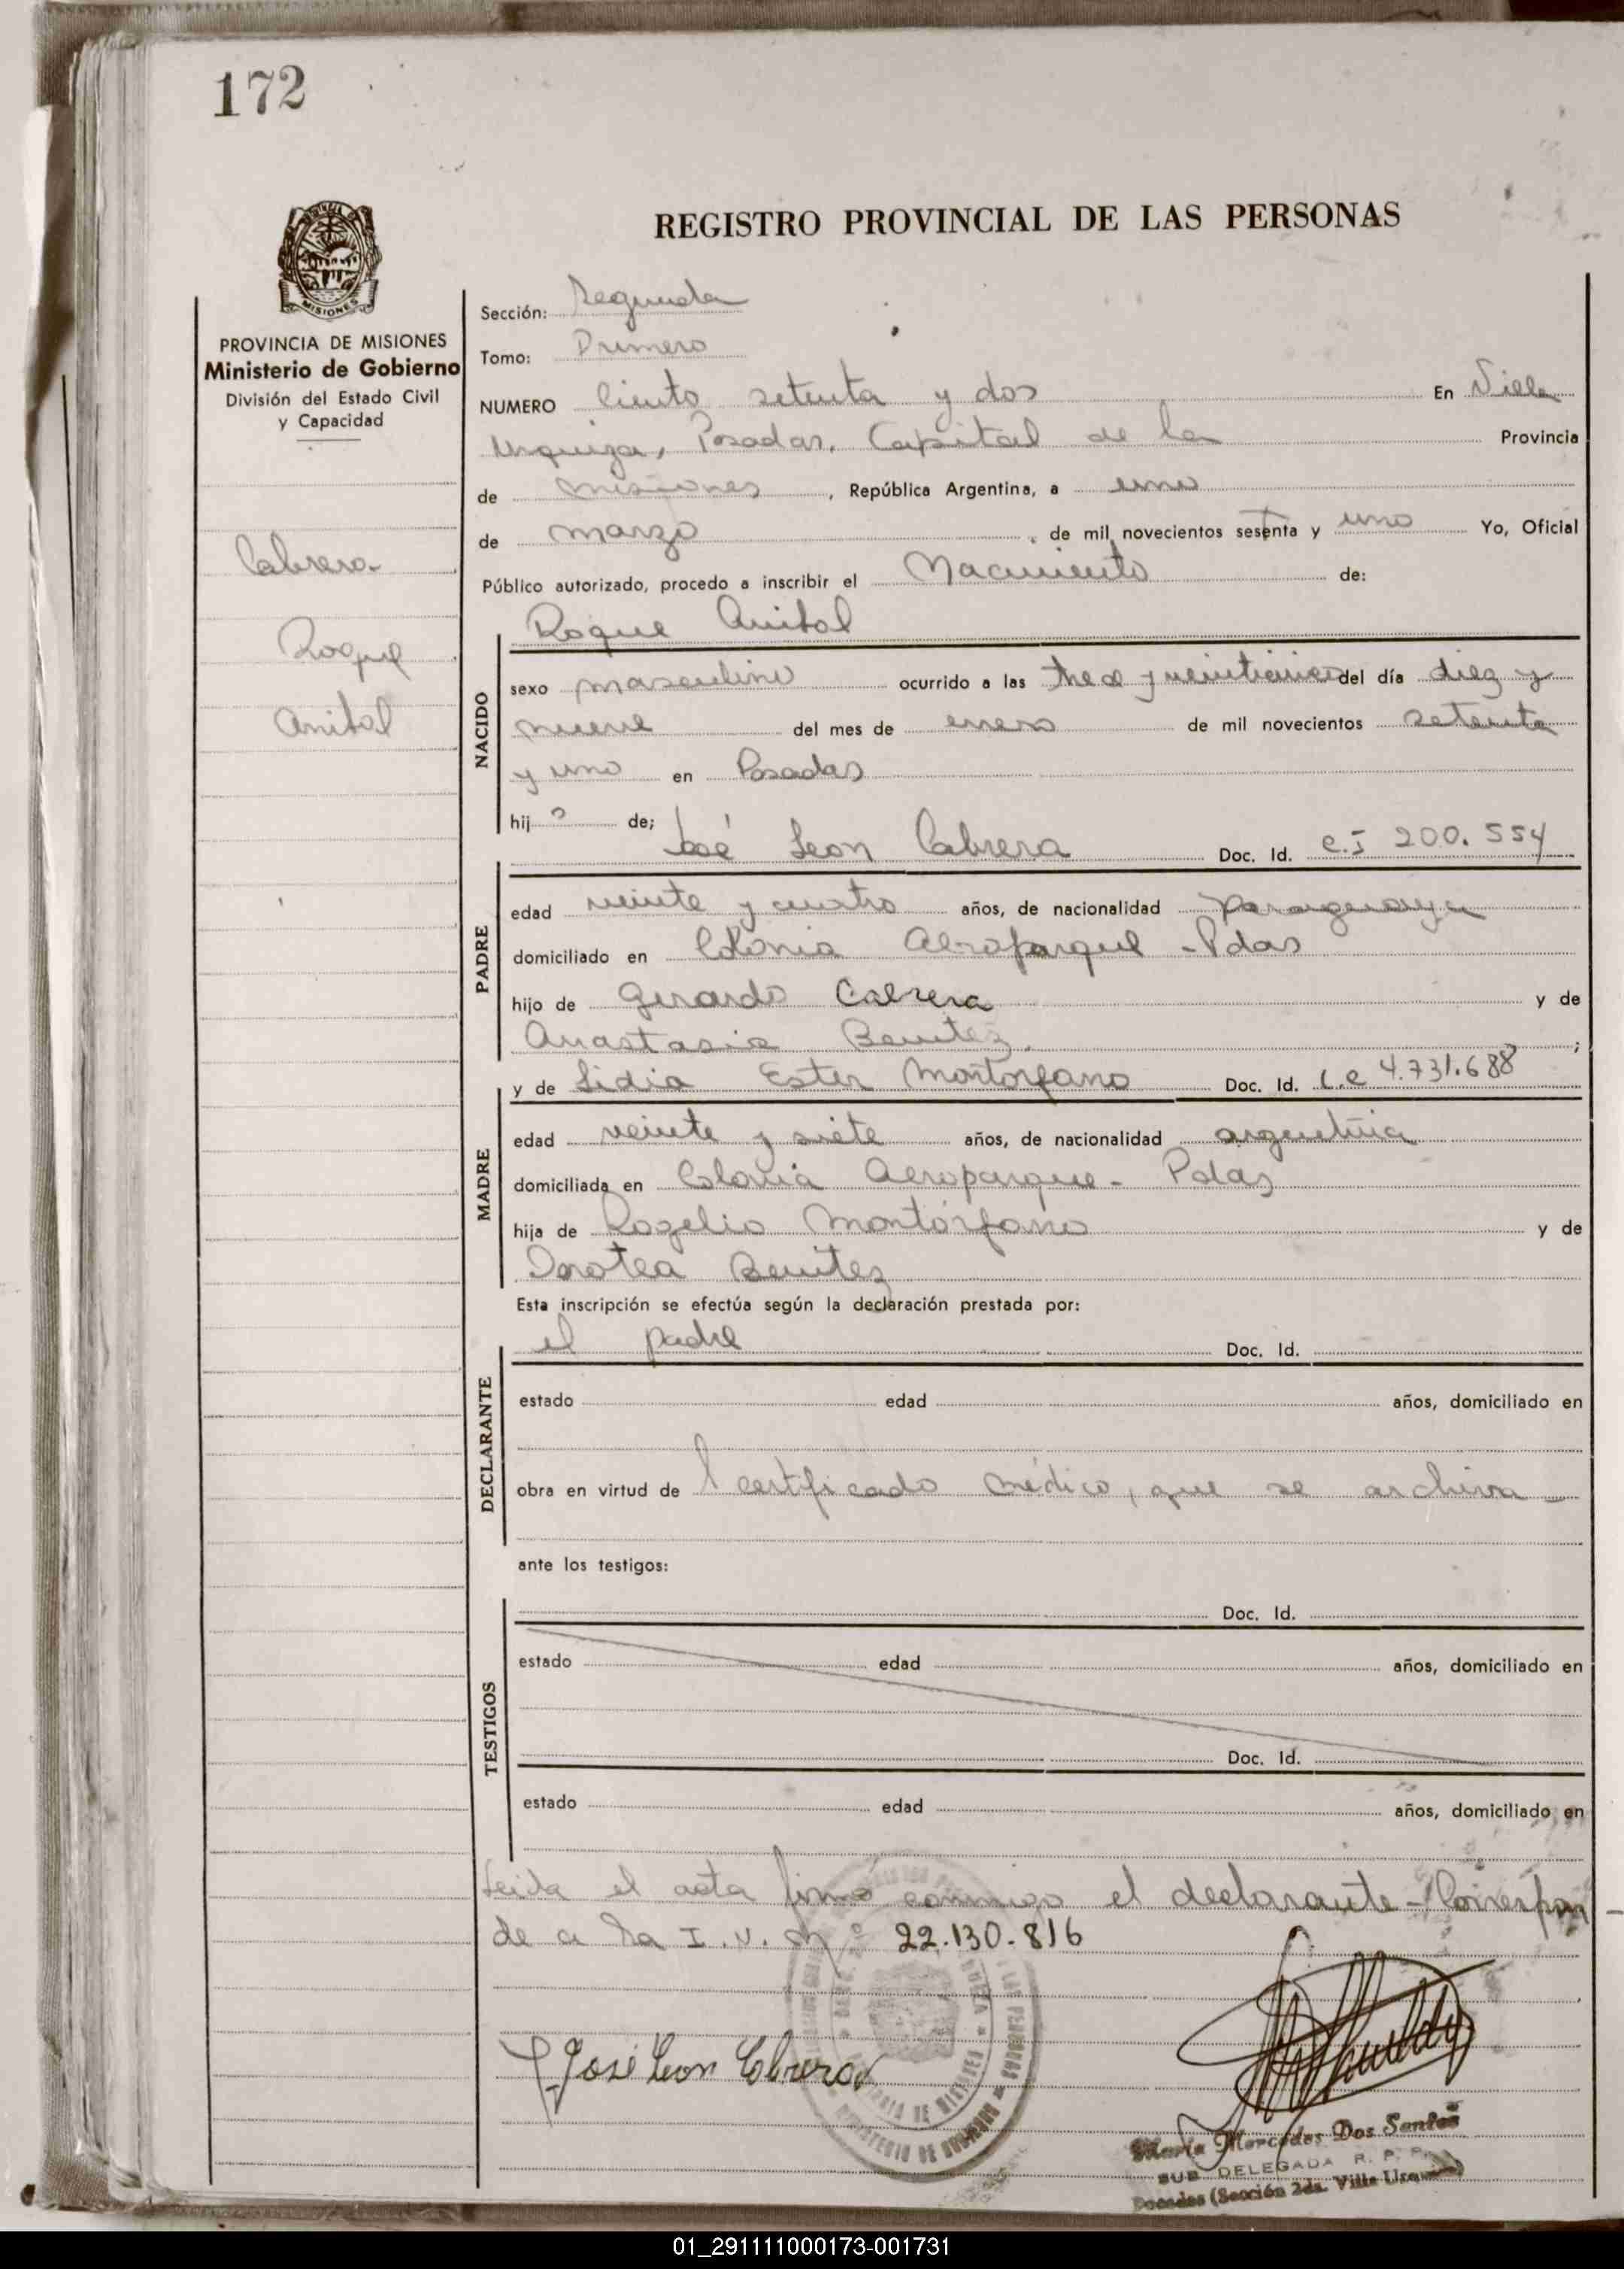 172
PROVINCIA DE MISIONES
Ministerio de Gobierno
División del Estado Civil
y Capacidad
Cabrera
Roque
Anibal
REGISTRO PROVINCIAL DE LAS PERSONAS
Sección: Segunda
Tomo: Primero
NUMERO Ciento setenta y dos En Villa
Urquiza, Posadas, Capital de la Provincia
de Misiones, República Argentina, a uno
de marzo, de mil novecientos setenta y uno Yo, Oficial
Público autorizado, procedo a inscribir el Nacimiento de:
Roque Anibal
NACIDO
sexo masculino ocurrido a las trece y del día diez y
nueve del mes de enero de mil novecientos setenta
y uno en Posadas
hijo de;
José Leon Cabrera Doc. Id. C.I 200.554
PADRE
edad veinte y cuatro años, de nacionalidad paraguaya
domiciliado en Colonia Aeroparque - Pdas
hijo de Gerardo Cabrera y de
Anastasia Benitez. ;
y de Lidia Ester Montorfano Doc. Id. L.C 4.731.688
MADRE
edad veinte y siete años, de nacionalidad argentina
domiciliada en Colonia Aeroparque - Pdas
hija de Rogelio Montórfano y de
Dorotea Benitez
Esta inscripción se efectúa según la declaración prestada por:
el padre Doc. Id.
DECLARANTE
estado edad años, domiciliado en
obra en virtud de l certificado médico, que se archiva -
ante los testigos:
Doc. Id.
TESTIGOS
estado edad años, domiciliado en
Doc. Id.
estado edad años, domiciliado en
Leida el acta firmó conmigo el declarante - Correspon -
de a la I.N. Nº 22.130.816
José Leon Cabrera
Maria Mercedes Dos Santos
SUB DELEGADA R. P. P.
Posadas (Sección 2da. Villa Urquiza)
01_291111000173-001731